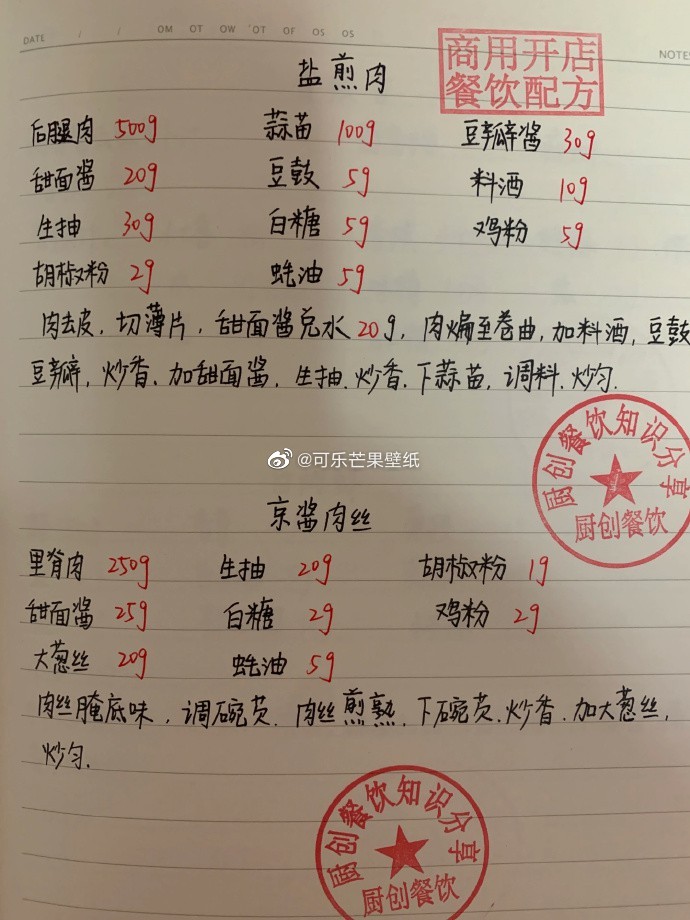 DATE / / OM OT OW OT OF OS OS
NOTES
商用开店
餐饮配方
盐煎肉
后腿肉 500g 蒜苗 100g 豆瓣酱 30g
甜面酱 20g 豆鼓 5g 料酒 10g
生抽 30g 白糖 5g 鸡粉 5g
胡椒粉 2g 蚝油 5g
肉去皮，切薄片，甜面酱兑水20g，肉煸至卷曲，加料酒，豆鼓
豆瓣，炒香、加甜面酱，生抽、炒香、下蒜苗，调料、炒匀.
厨创餐饮知识分享
厨创餐饮
@可乐芒果壁纸
京酱肉丝
里脊肉 250g 生抽 20g 胡椒粉 1g
甜面酱 25g 白糖 2g 鸡粉 2g
大葱丝 20g 蚝油 5g
肉丝腌底味，调碗芡、肉丝煎熟、下碗芡、炒香、加大葱丝，
炒匀.
厨创餐饮知识分享
厨创餐饮